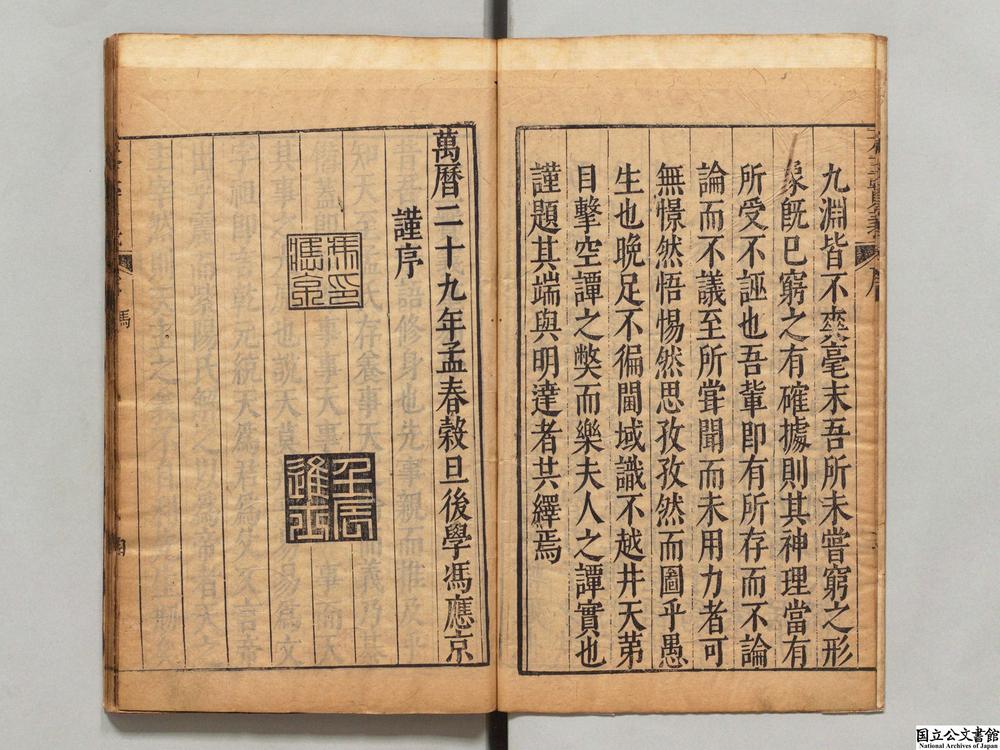 九淵皆不爽毫末吾所未嘗窮之形
象旣已窮之有確據則其神理當有
所受不誣也吾輩即有所存而不論
論而不議至所甞聞而未用力者可
無憬然悟惕然思孜孜然而圖乎愚
生也晚足不徧閫域識不越井天第
目擊空譚之弊而樂夫人之譚實也
謹題其端與明達者共繹焉
萬曆二十九年孟春穀旦後學馮應京
謹序
馮
壬辰
進士
国立公文書館
National Archives of Japan